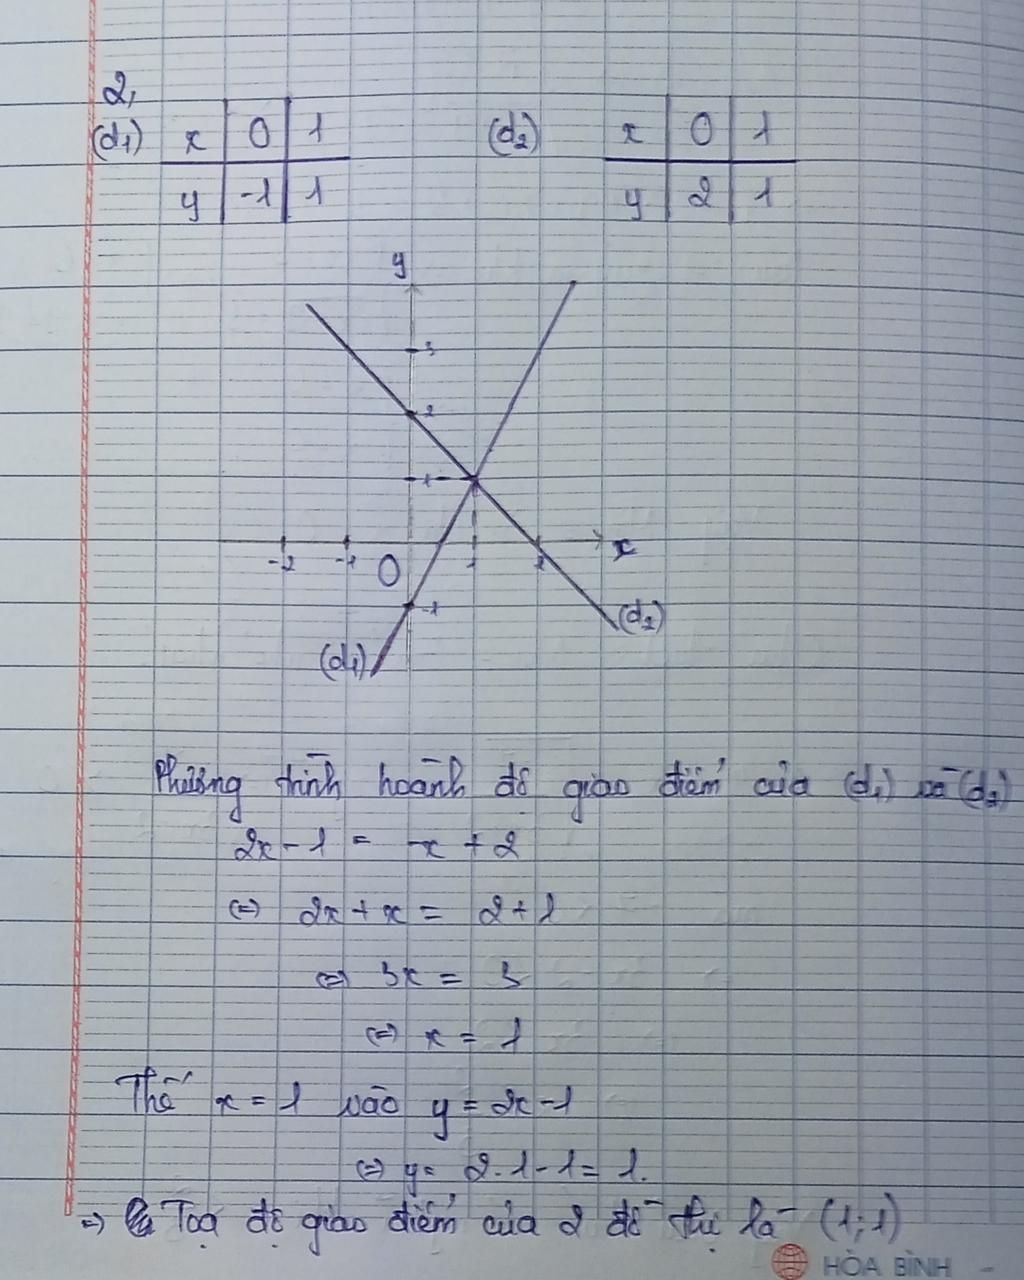 2,
(d1) x 0 1 (d2) x 0 1
y -1 1 y 2 1
y
3
2
1
-2 -1 O 1 2 x
-1
(d2)
(d1)
Phương trình hoành độ giao điểm của (d1) và (d2)
2x - 1 = -x + 2
(=) 2x + x = 2 + 1
(=) 3x = 3
(=) x = 1
Thế x = 1 vào y = 2x - 1
(=) y = 2.1 - 1 = 1.
=) Toạ độ giao điểm của 2 đồ thị là (1;1)
HÒA BÌNH